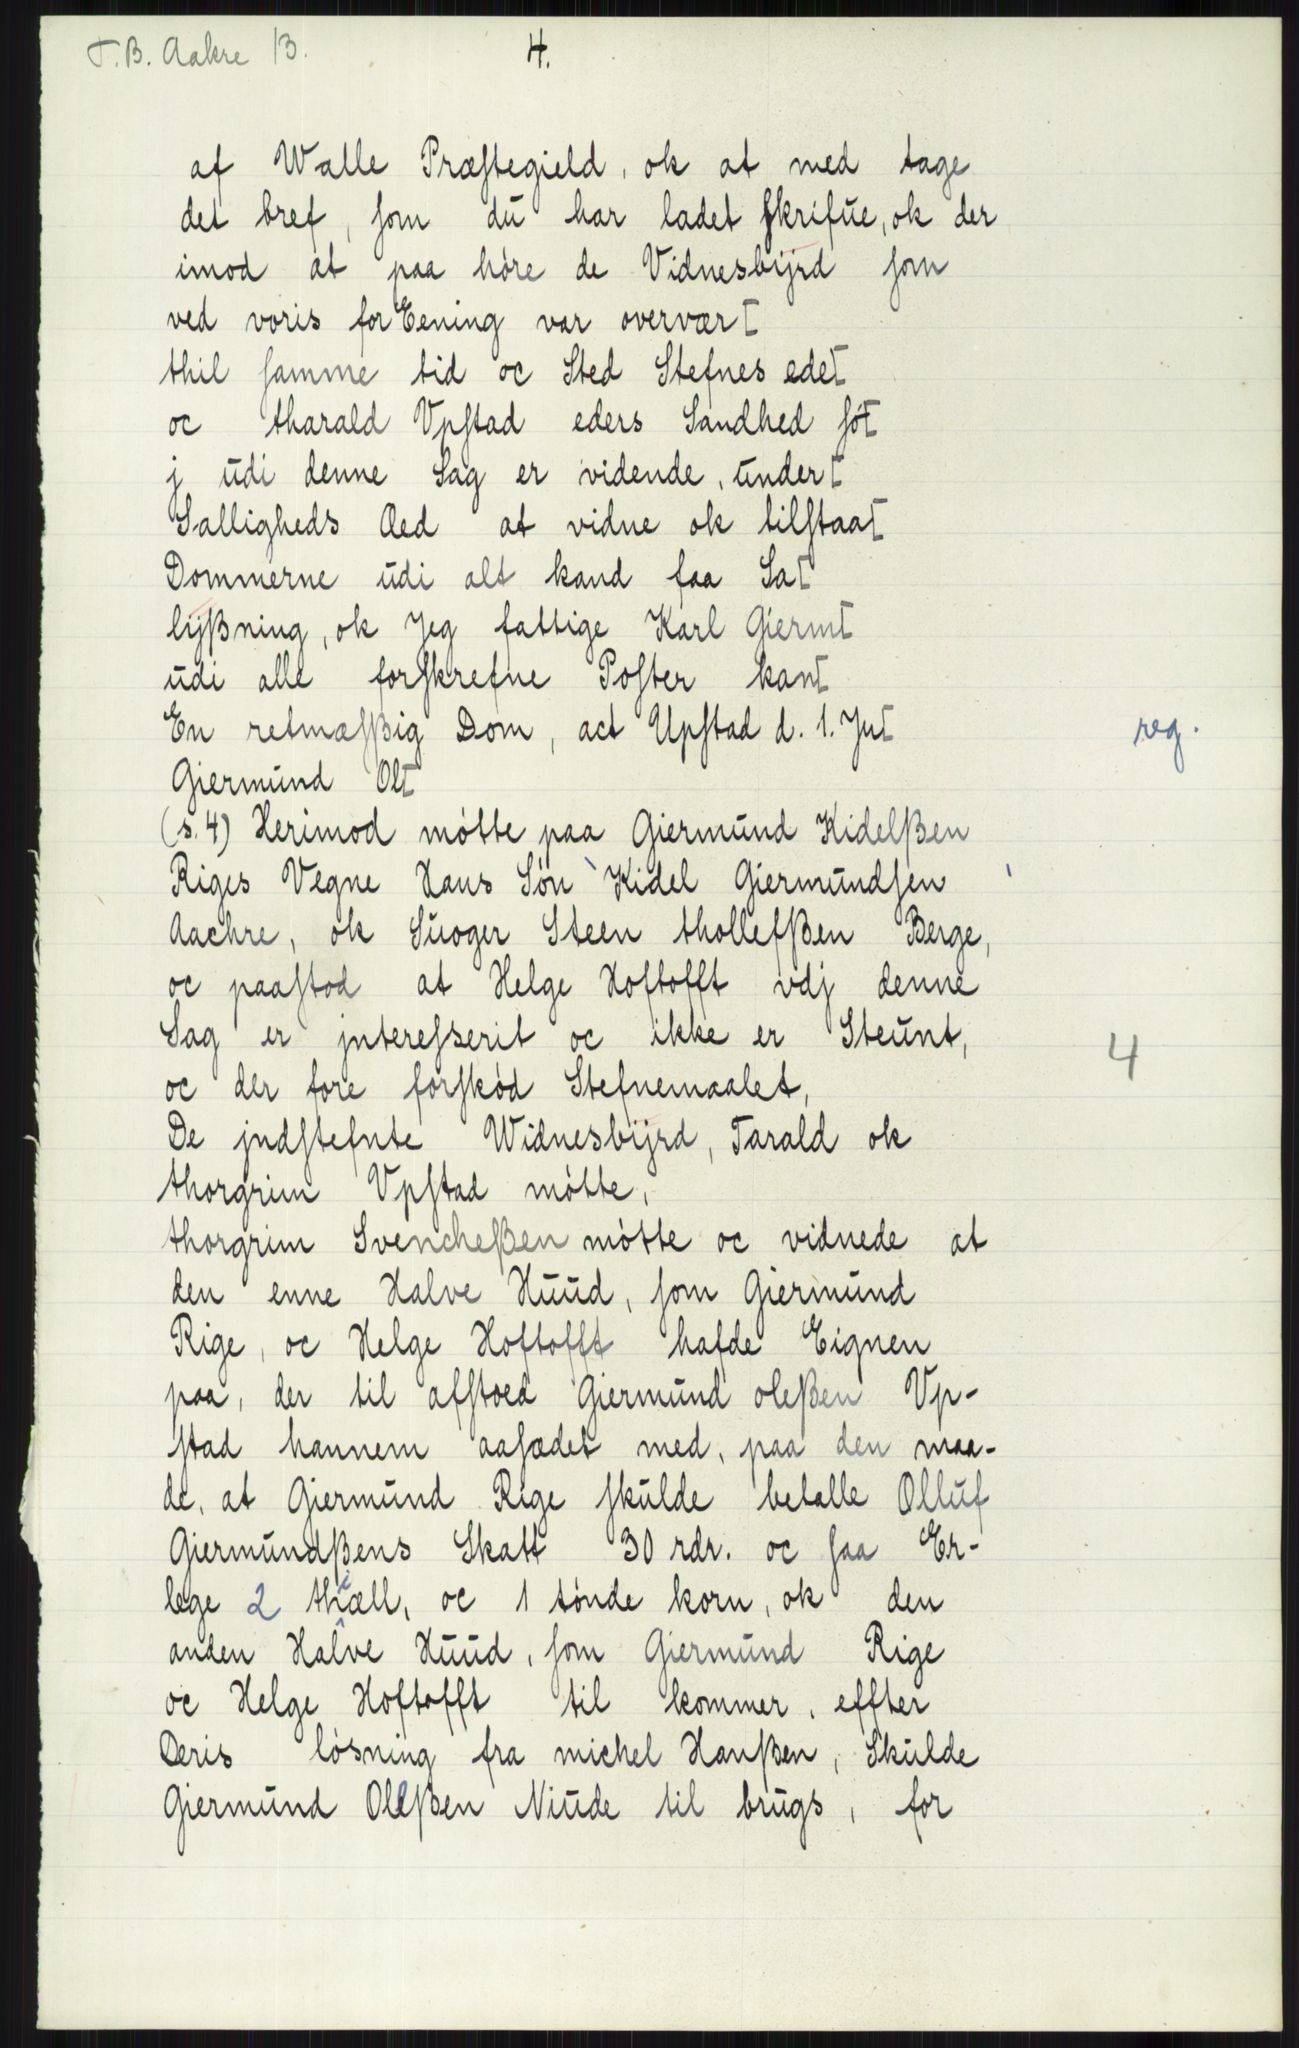 T. B. Aakre 13.
4.
af Walle Præstegield, ok at med tage
det bref, som du har ladet skrifue, ok der
imod at paa høre de Vidnesbÿrd som
ved voris for Eening var overvær[
thil samme tid oc Sted Stefnes ede[
oc tharald Vpstad eders Sandhed so[
j udi denne Sag er vidende, under[
Salligheds Aed at vidne ok tilstaa[
Dommerne udi alt kand faa Sa[
lÿßning, ok Jeg fattige Karl Gierm[
udi alle forskrefne Poster kan[
En retmæssig Dom, act Upstad d. 1. Ju[
reg.
Giermund Ol[
(s. 4) Herimod møtte paa Giermund Kidelßen
Riges Vegne Hans Søn Kidel Giermundsen
Aachre, ok Suoger Steen thollefßen Berge,
oc paastod at Helge Hoftofft vdj denne
Sag er jnteresserit oc ikke er Steunt,
4
oc der fore forskød Stefnemaalet,
De jndstefnte Widnesbÿrd, Tarald ok
thorgrim Vpstad møtte,
thorgrim Svencheßen møtte oc vidnede at
den enne Halve Huud, som Giermund
Rige, oc Helge Hoftofft hafde Eignen
paa, der til afstoed Giermund oleßen Vp-
stad hannem aasædet med, paa den maa-
de, at Giermund Rige skulde betalle Olluf
Giermundßens Skatt 30 rdr. oc saa Er-
lege 2 thiæll, oc 1 tønde korn, ok den
anden Halve Huud, som Giermund Rige
oc Helge Hoftofft til kommer, effter
Deris løsning fra michel Hanßen, Skulde
Giermund Oleßen Niude til brugs, for